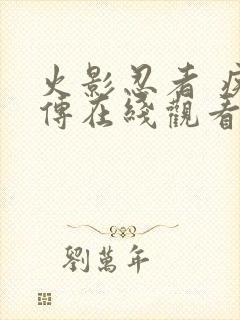 火影忍者 疾
傳在綫觀看
劉萬年